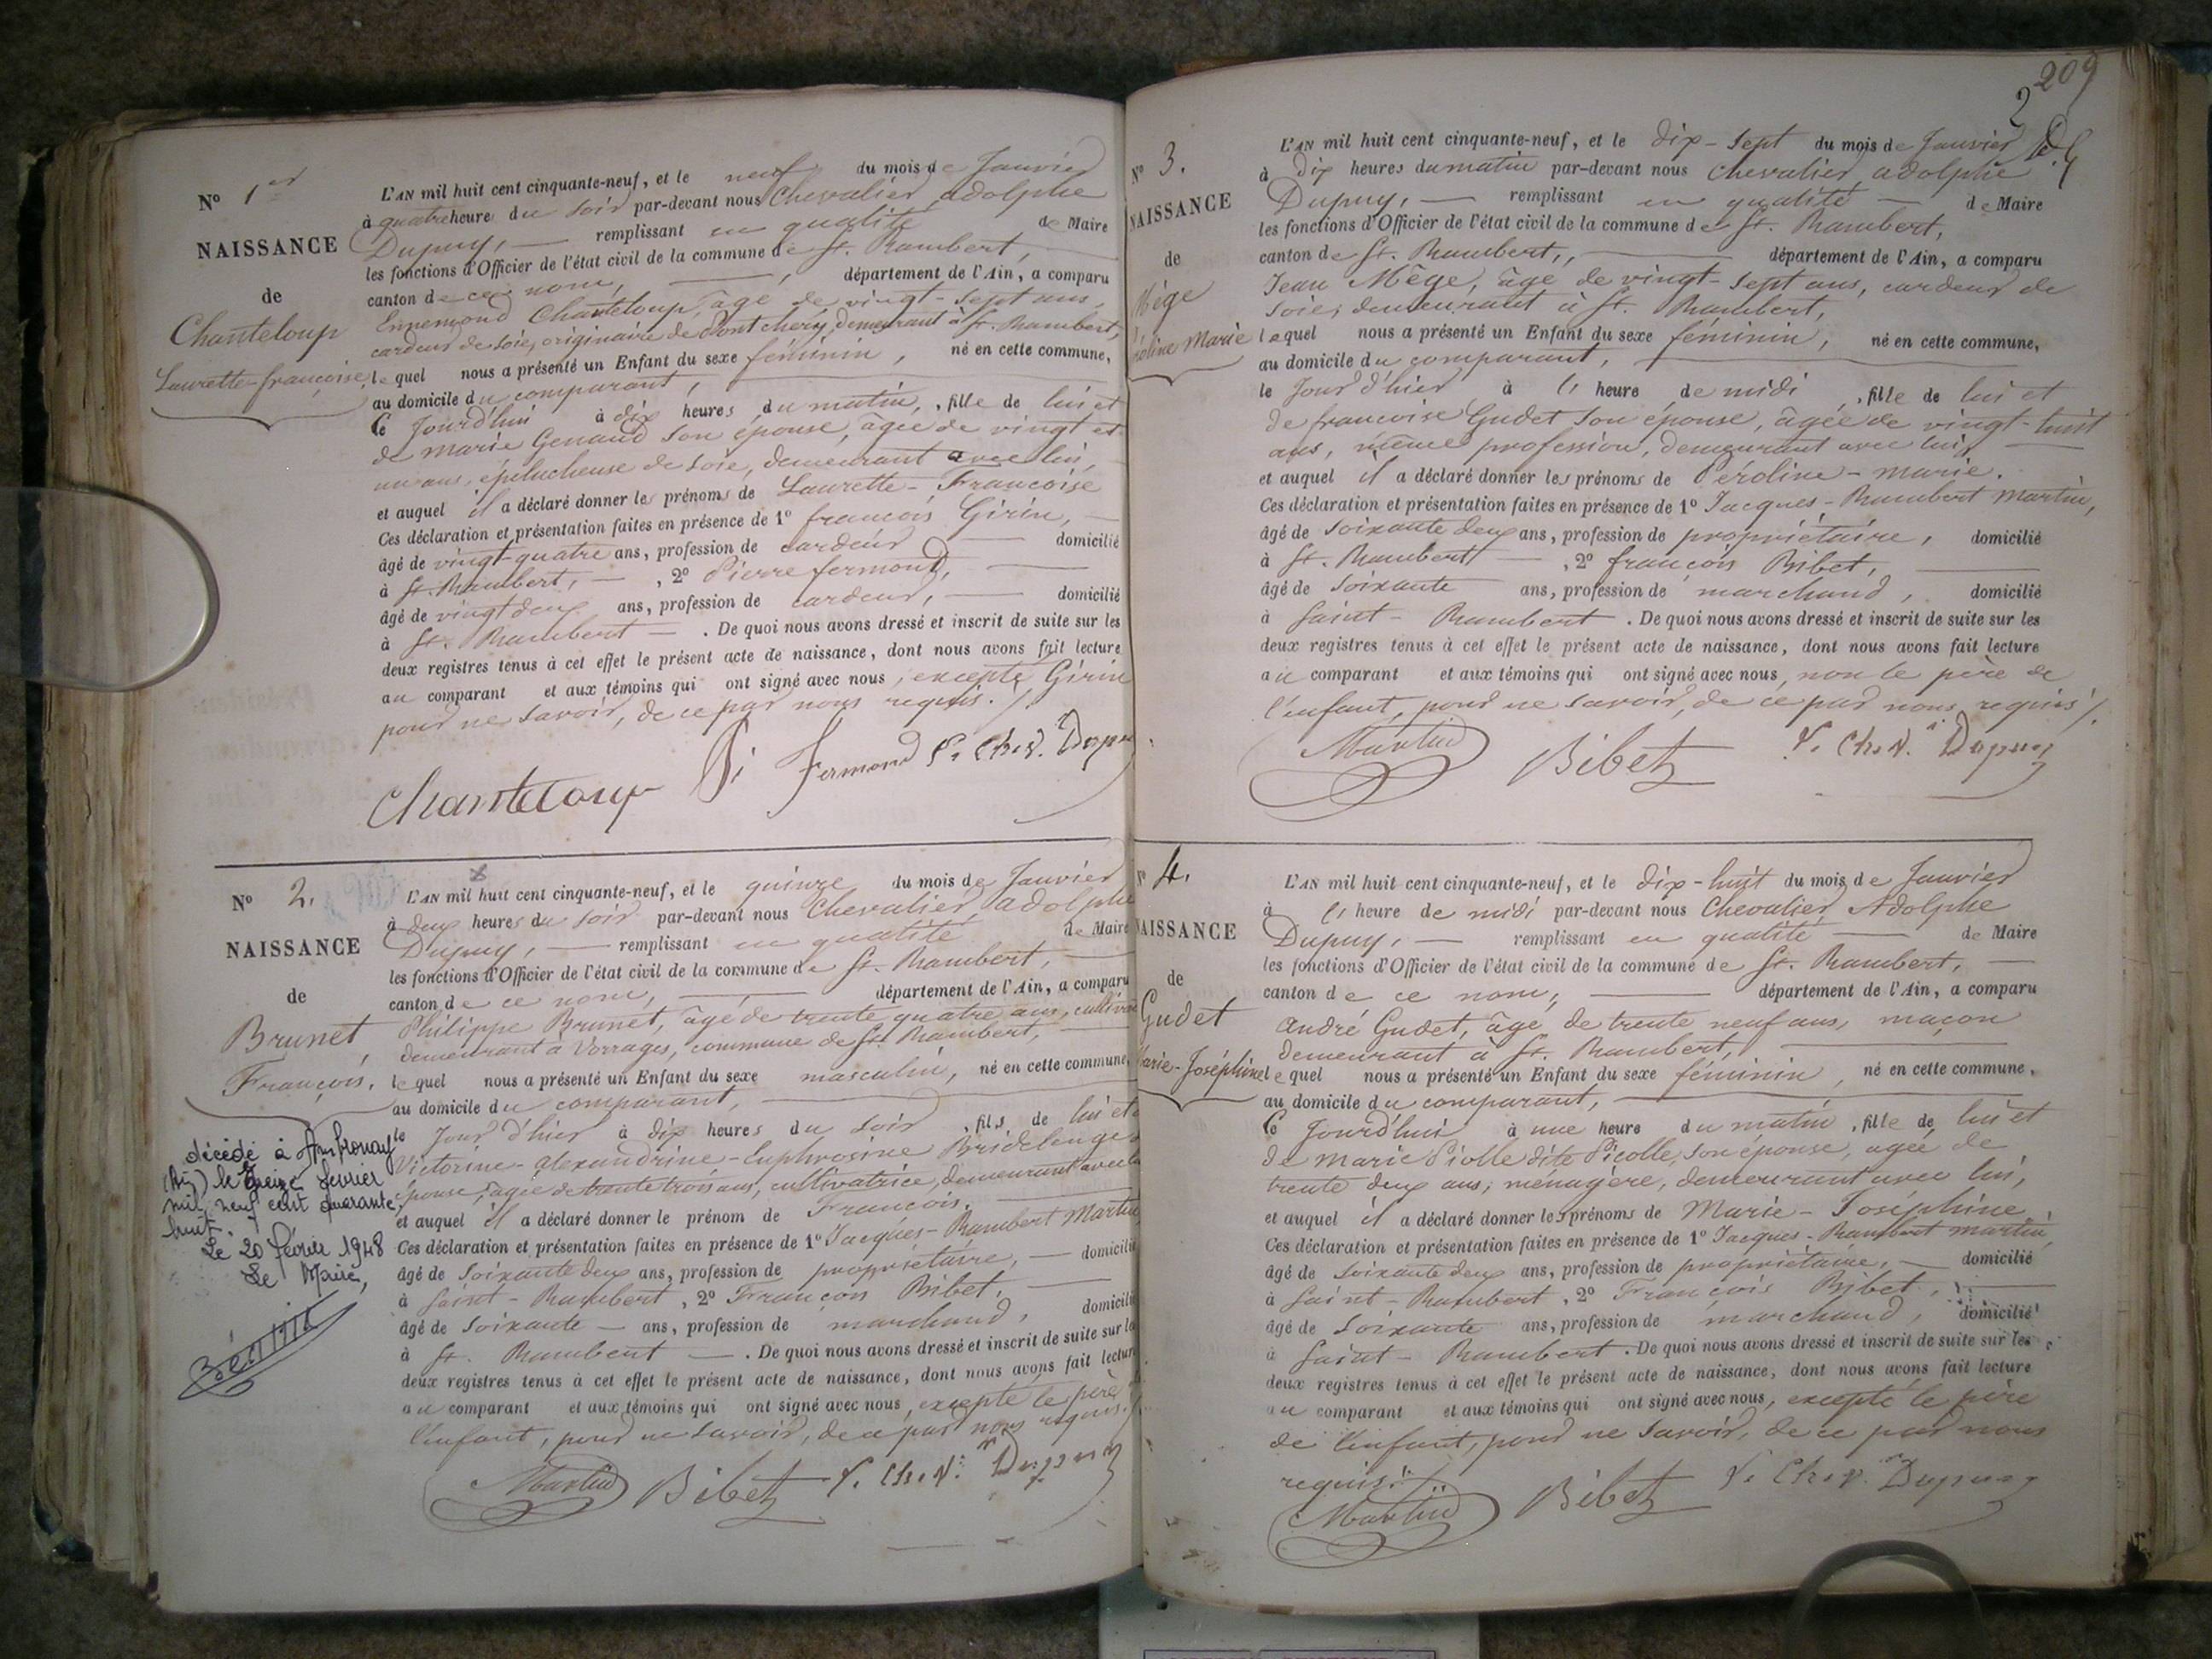 N° 1er
NAISSANCE
de
Chanteloup
Laurette-françoise
L'AN mil huit cent cinquante-neuf, et le neuf du mois de Janvier
à quatre heure du soir par-devant nous Chevalier, adolphe
Dupuy, remplissant en qualité de Maire
les fonctions d'Officier de l'état civil de la commune de St. Rambert,
canton de ce nom, département de l'Ain, a comparu
Ennemond Chanteloup, âgé de vingt-sept ans,
cardeur de soie, originaire de demeurant à St. Rambert,
lequel nous a présenté un Enfant du sexe féminin, né en cette commune,
au domicile du comparant,
le Jourd'hui à dix heures du matin, fille de lui et
de marie Genaud son épouse, âgée de vingt et
un ans, éplucheuse de soie, demeurant avec lui,
et auquel il a déclaré donner les prénoms de Laurette-Françoise
Ces déclaration et présentation faites en présence de 1° françois Girin,
âgé de vingt-quatre ans, profession de cardeur domicilié
à St. Rambert, 2° Pierre fermond,
âgé de vingt deux ans, profession de cardeur, domicilié
à St. Rambert. De quoi nous avons dressé et inscrit de suite sur les
deux registres tenus à cet effet le présent acte de naissance, dont nous avons fait lecture
au comparant et aux témoins qui ont signé avec nous, excepté Girin
pour ne savoir, de ce par nous requis.
Chanteloup Pi fermond Chev. Dupuy
N° 2.
NAISSANCE
de
Brunet
François,
décédé à Ambronay
(Ain) le treize février
mil neuf cent quarante
huit.
Le 20 février 1948
Le Maire,
L'AN mil huit cent cinquante-neuf, et le quinze du mois de Janvier
à deux heures du soir par-devant nous Chevalier, adolphe
Dupuy, remplissant en qualité de Maire
les fonctions d'Officier de l'état civil de la commune de St. Rambert,
canton de ce nom, département de l'Ain, a comparu
Philippe Brunet, âgé de trente quatre ans,
demeurant à Vorages, commune de St. Rambert,
lequel nous a présenté un Enfant du sexe masculin, né en cette commune,
au domicile du comparant,
le Jour d'hier à dix heures du soir, fils de lui et
Victorine-alexandrine-Euphrosine
épouse, âgée de trente trois ans, cultivatrice, demeurant avec
et auquel il a déclaré donner le prénom de François.
Ces déclaration et présentation faites en présence de 1° Jacques-Rambert Martin
âgé de soixante deux ans, profession de propriétaire, domicilié
à Saint-Rambert, 2° François Bibet,
âgé de soixante ans, profession de marchand, domicilié
à St. Rambert. De quoi nous avons dressé et inscrit de suite sur les
deux registres tenus à cet effet le présent acte de naissance, dont nous avons fait lecture
au comparant et aux témoins qui ont signé avec nous, excepté le père
l'enfant, pour ne savoir, de ce par nous requis.
Martin Bibet Chev. Dupuy
209
2
N° 3.
NAISSANCE
de
Mège
L'AN mil huit cent cinquante-neuf, et le dix-sept du mois de Janvier
à dix heures du matin par-devant nous Chevalier, adolphe
Dupuy, remplissant en qualité de Maire
les fonctions d'Officier de l'état civil de la commune de St. Rambert,
canton de St. Rambert, département de l'Ain, a comparu
Jean Mège, âgé de vingt-sept ans, cardeur de
soie, demeurant à St. Rambert,
lequel nous a présenté un Enfant du sexe féminin, né en cette commune,
au domicile du comparant,
le Jour d'hier à l' heure de midi, fille de lui et
de françoise Gudet son épouse, âgée de vingt-huit
ans, même profession, demeurant avec lui,
et auquel il a déclaré donner les prénoms de Péroline-marie.
Ces déclaration et présentation faites en présence de 1° Jacques-Rambert martin,
âgé de soixante deux ans, profession de propriétaire, domicilié
à St. Rambert, 2° françois Bibet,
âgé de soixante ans, profession de marchand, domicilié
à Saint-Rambert. De quoi nous avons dressé et inscrit de suite sur les
deux registres tenus à cet effet le présent acte de naissance, dont nous avons fait lecture
au comparant et aux témoins qui ont signé avec nous, non le père de
l'enfant, pour ne savoir, de ce par nous requis.
Martin Bibet Chev. Dupuy
N° 4.
NAISSANCE
de
Gudet
Marie-Joséphine
L'AN mil huit cent cinquante-neuf, et le dix-huit du mois de Janvier
à l' heure de midi par-devant nous Chevalier, Adolphe
Dupuy, remplissant en qualité de Maire
les fonctions d'Officier de l'état civil de la commune de St. Rambert,
canton de ce nom, département de l'Ain, a comparu
andré Gudet, âgé de trente neuf ans, maçon
demeurant à St. Rambert,
lequel nous a présenté un Enfant du sexe féminin, né en cette commune,
au domicile du comparant,
le Jourd'hui à une heure du matin, fille de lui et
de marie Piolle dite Picolle, son épouse, agée de
trente deux ans, ménagère, demeurant avec lui,
et auquel il a déclaré donner les prénoms de Marie-Joséphine.
Ces déclaration et présentation faites en présence de 1° Jacques-Rambert martin,
âgé de soixante deux ans, profession de propriétaire, domicilié
à Saint-Rambert, 2° François Bibet,
âgé de soixante ans, profession de marchand, domicilié
à Saint-Rambert. De quoi nous avons dressé et inscrit de suite sur les
deux registres tenus à cet effet le présent acte de naissance, dont nous avons fait lecture
au comparant et aux témoins qui ont signé avec nous, excepté le père
de l'enfant, pour ne savoir, de ce par nous
requis.
Martin Bibet Chev. Dupuy